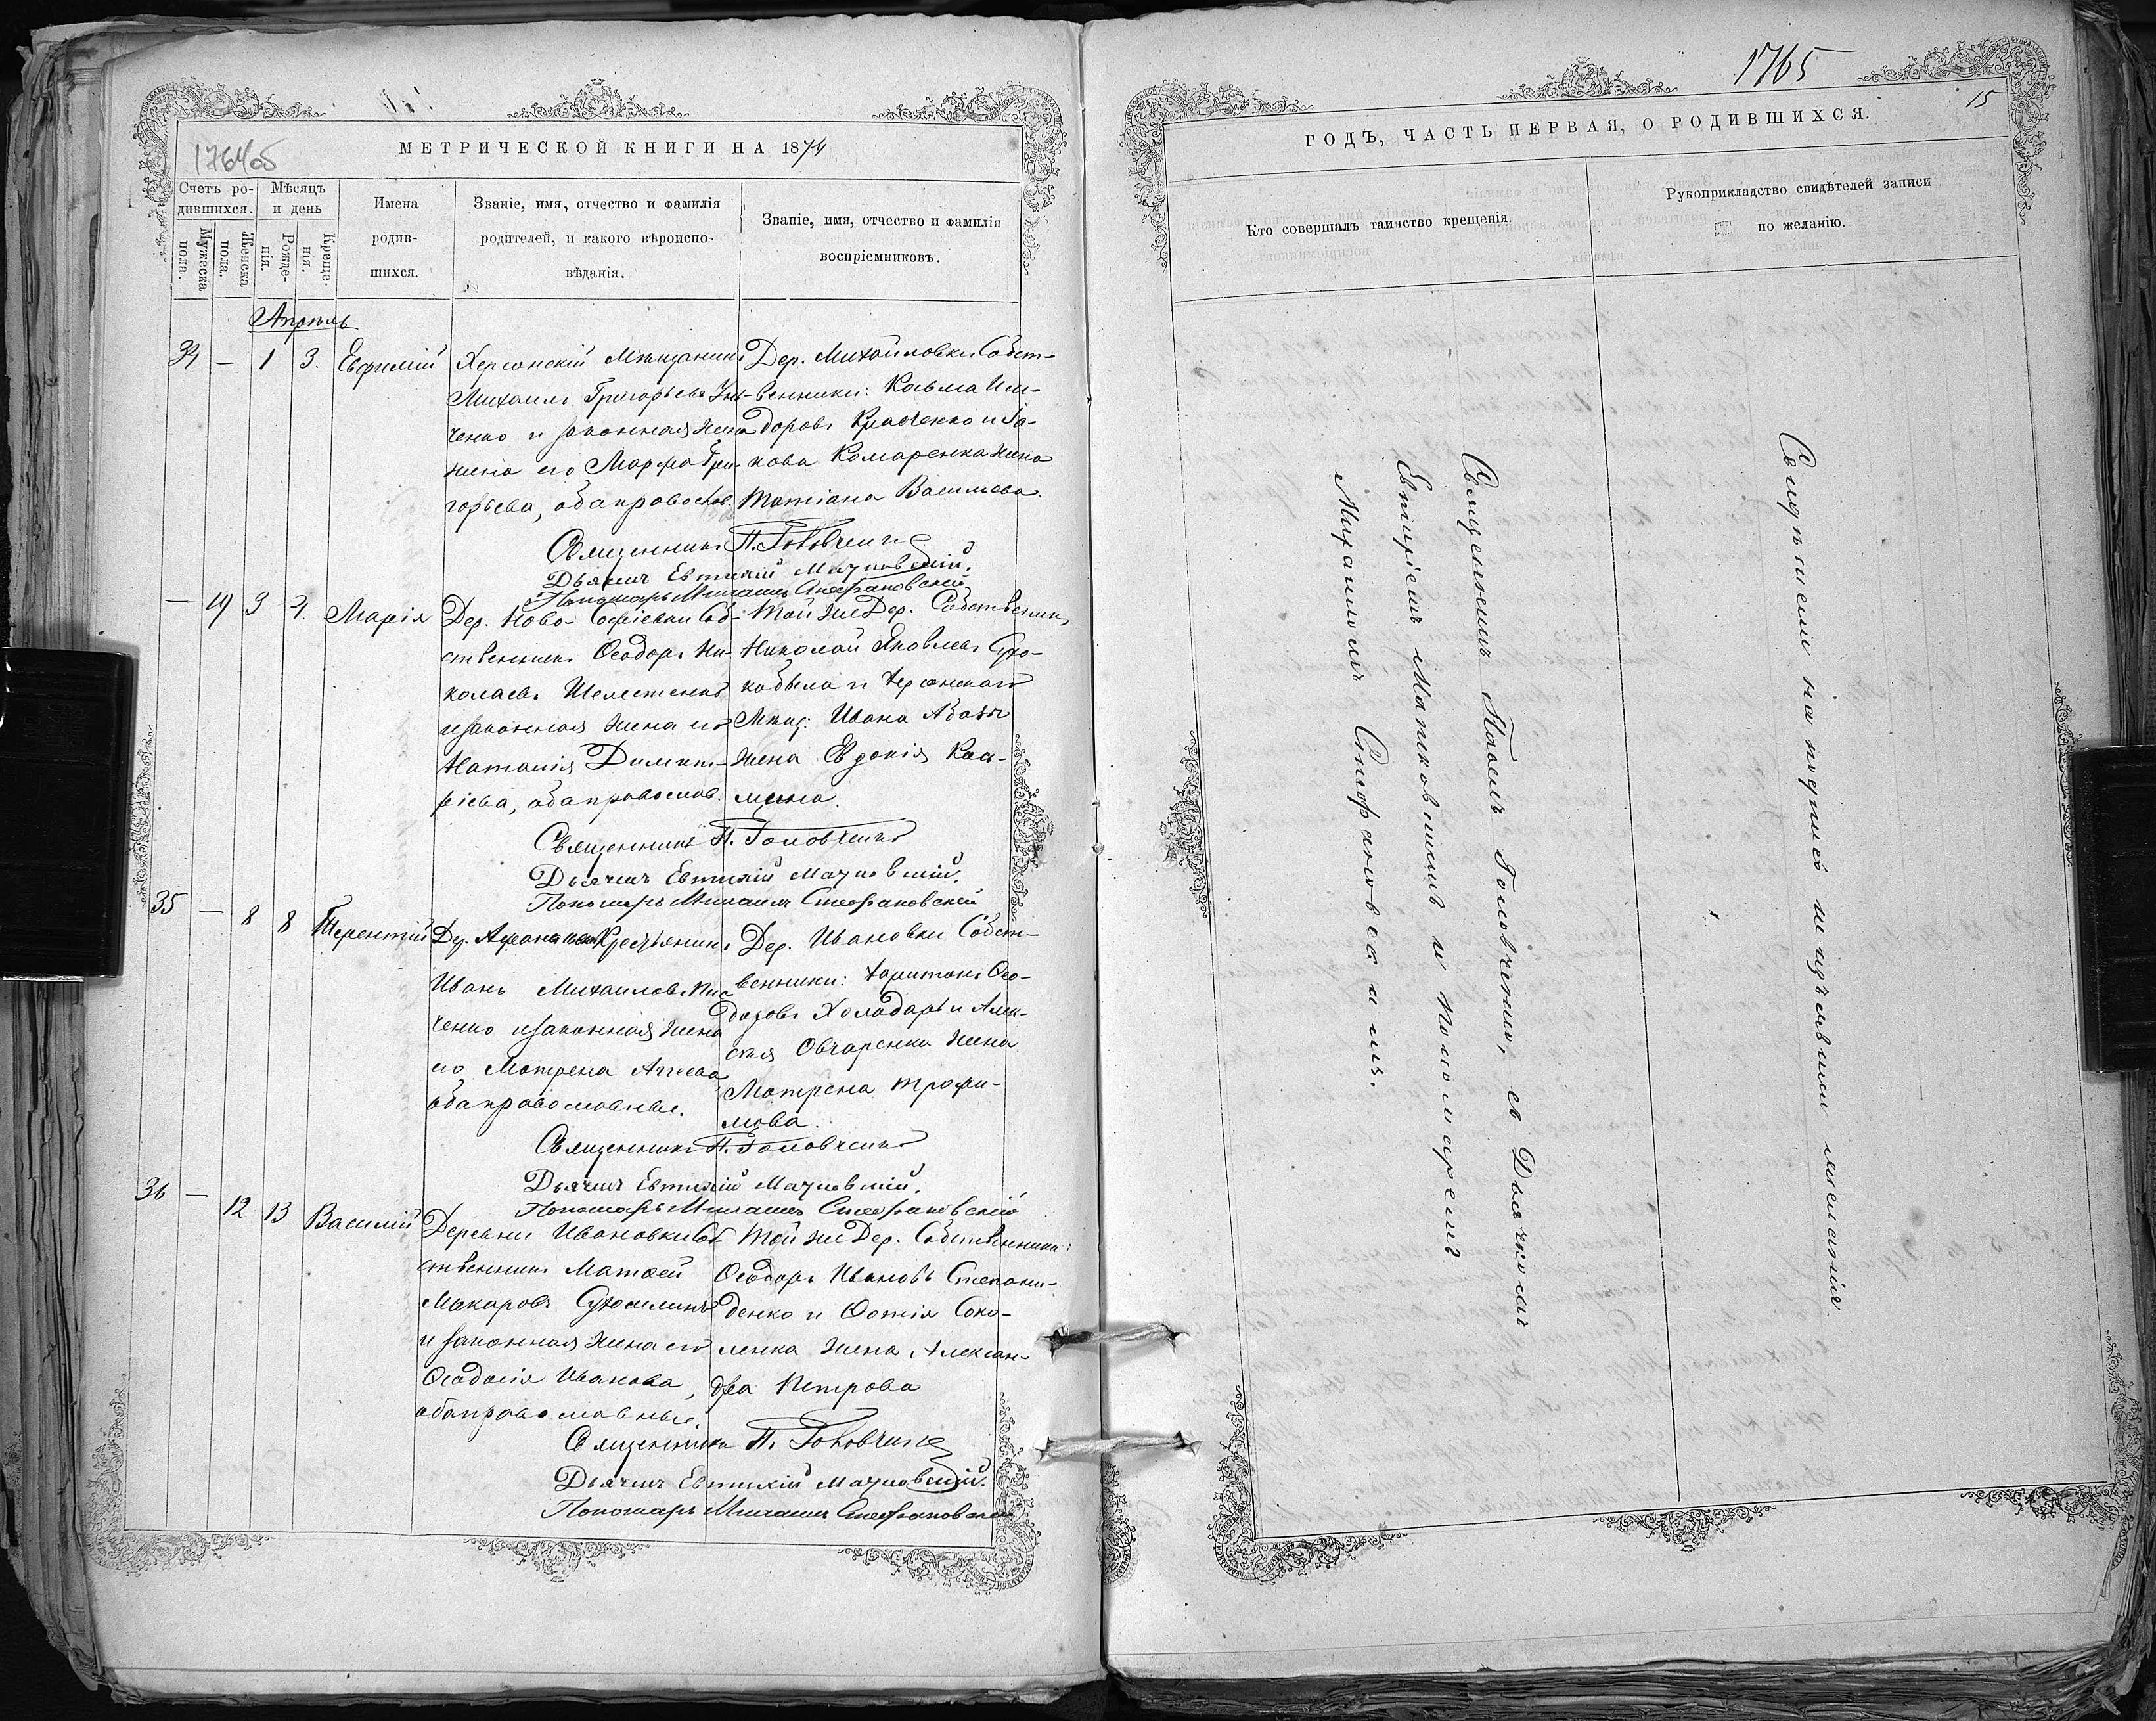 МЕТРИЧЕСКОЙ КНИГИ НА 1874
Счетъ ро-
дившихся.
Мужеска
пола.
Женска
пола.
Мѣсяцъ
и день
Рожде-
нія.
Креще-
нія.
Имена
родив-
шихся.
Званіе, имя, отчество и фамилія
родителей, и какого вѣроиспо-
вѣданія.
Званіе, имя, отчество и фамилія
воспріемниковъ.
Апрѣль
34 — 1 3. Евфимій
Херсонскій Мѣщанинъ
Михаилъ Григорьевъ
ченко и законная
жена его Марфа Гри-
горьева, оба православ.
Дер. Михайловки Собст-
венники: Косьма Иси-
доровъ Кравченко и Іа-
кова Комаренка жена
Татіана Васильева.
Священникъ П. Головченко
Дьячекъ Евтихій Мачковскій.
Пономарь Михаилъ Стефановскій
— 19 3 4. Марія
Дер. Ново-Софіевки Соб-
ственникъ Ѳеодоръ Ни-
колаевъ Шелестенко
и законная жена его
Наталія Димит-
ріева, оба православ.
Той же Дер. Собственник
Николай Яковлевъ Сухо-
кобыла и Херсонскаго
Мѣщ: Ивана
жена Евдокія Кось-
мина.
Священникъ П. Головченко
Дьячекъ Евтихій Мачковскій.
Пономарь Михаилъ Стефановскій
35 — 8 8 Терентій
Дер. Крестьянинъ
Иванъ Михаиловъ
ченко и законная жена
его Матрена
оба православные.
Дер. Ивановки Собст-
венники: Харитонъ Ѳео-
доровъ Холодарь и Алек-
сѣя Овчаренка жена
Матрена Трофи-
мова.
Священникъ П. Головченко
Дьячекъ Евтихій Мачковскій.
Пономарь Михаилъ Стефановскій
36 — 12 13 Василій
Деревни Ивановки Соб-
ственникъ Матѳей
Макаровъ Сухомлинъ
и законная жена его
Ѳеодосія Иванова,
оба православные.
Той же Дер. Собственники:
Ѳеодоръ Ивановъ Степани-
денко и Ѳотія Соко-
ленка жена Алексан-
дра Петрова
Священникъ П. Головченко
Дьячекъ Евтихій Мачковскій.
Пономарь Михаилъ Стефановскій
1765
15
ГОДЪ, ЧАСТЬ ПЕРВАЯ, О РОДИВШИХСЯ.
Кто совершалъ таинство крещенія.
Рукоприкладство свидѣтелей записи
по желанію.
Священникъ Павелъ Головченко, съ Дьячкомъ
Евтихіемъ Мачковскимъ и Пономаремъ
Михаиломъ Стефановскимъ.
Свидѣтели на подпись не изъявили желанія.